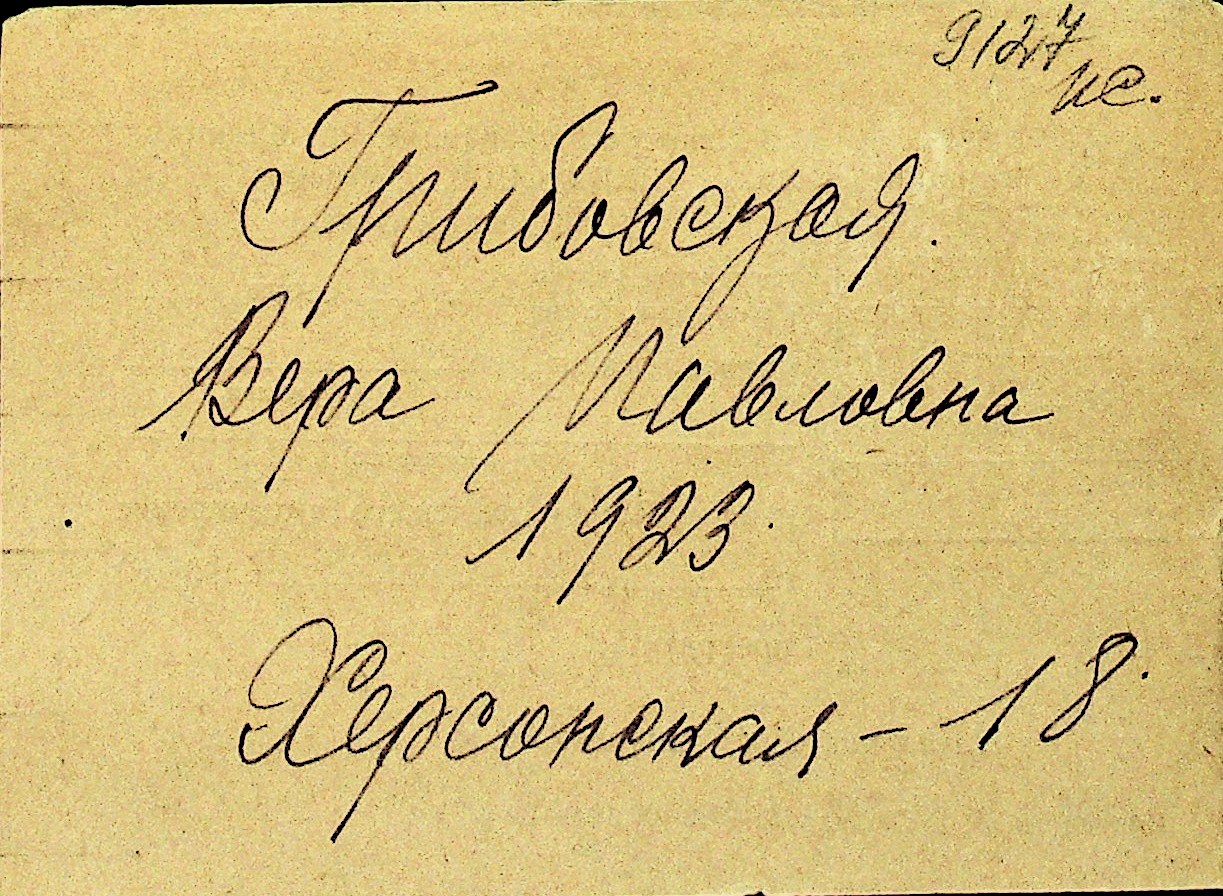 9127
ис.
Грибовская.
Вера Павловна
1923
Херсонская - 18